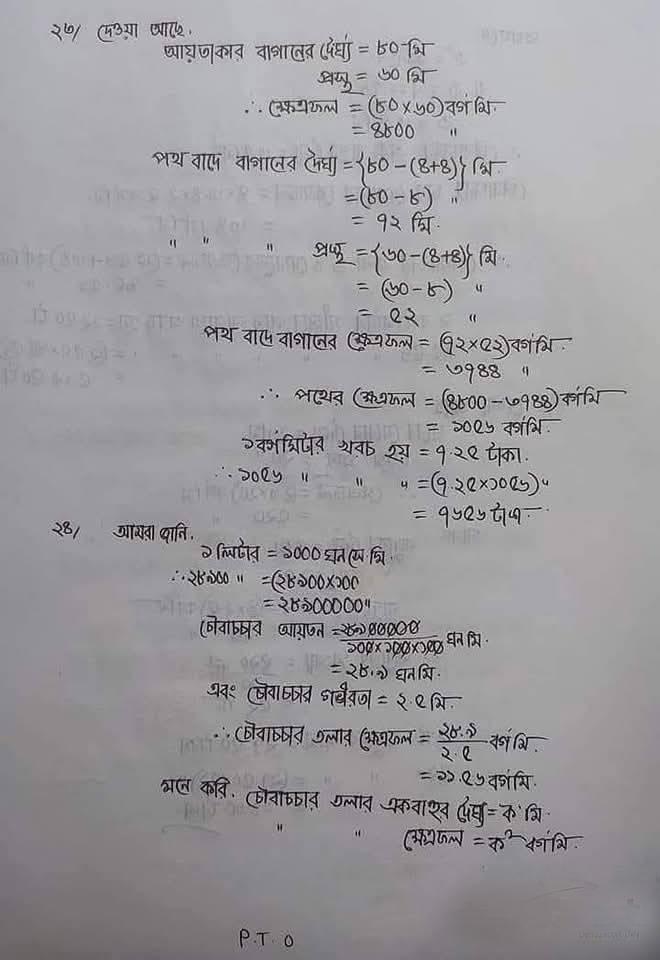 ২৩/ দেওয়া আছে.
আয়তাকার বাগানের দৈর্ঘ্য = ৮০ মি
প্রস্থ = ৬০ মি
∴ ক্ষেত্রফল = (৮০×৬০) বর্গ মি.
= ৪৮০০ "
পথ বাদে বাগানের দৈর্ঘ্য = {৮০ - (৪+৪)} মি.
= (৮০ - ৮) "
= ৭২ মি.
" " " প্রস্থ = {৬০ - (৪+৪)} মি.
= (৬০ - ৮) "
= ৫২ "
পথ বাদে বাগানের ক্ষেত্রফল = (৭২×৫২) বর্গ মি.
= ৩৭৪৪ "
∴ পথের ক্ষেত্রফল = (৪৮০০ - ৩৭৪৪) বর্গ মি
= ১০৫৬ বর্গমি.
১ বর্গমিটার খরচ হয় = ৭.২৫ টাকা.
∴ ১০৫৬ " " " = (৭.২৫×১০৫৬) "
= ৭৬৫৬ টাকা
২৪/ আমরা জানি.
১ লিটার = ১০০০ ঘন সে. মি.
∴ ২৮৯০০ " = (২৮৯০০×১০০
= ২৮৯০০০০০ "
চৌবাচ্চার আয়তন = ২৮৯০০০০০ / ১০০×১০০×১০০ ঘন মি.
= ২৮.৯ ঘনমি.
এবং চৌবাচ্চার গভীরতা = ২.৫ মি.
∴ চৌবাচ্চার তলার ক্ষেত্রফল = ২৮.৯ / ২.৫ বর্গ মি.
= ১১.৫৬ বর্গমি.
মনে করি. চৌবাচ্চার তলার একবাহুর দৈর্ঘ্য = ক মি.
" " ক্ষেত্রফল = ক² বর্গমি.
P.T.O